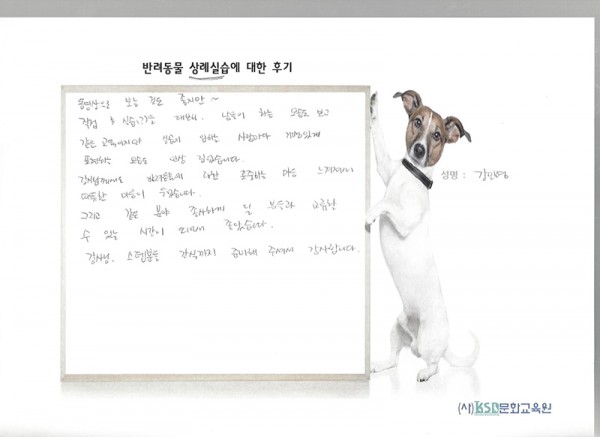 반려동물 상례실습에 대한 후기
동영상으로 보는 것도 좋지만~
직접 후 실습 해보니, 남들이 하는 모습도 보고
같은 교육이지만 실습에 임하는 사람마다 개성있게
표현하는 모습도 재밌었습니다.
강사님께서도 반려동물에 대한 존중하는 마음 느껴져서
따뜻한 마음이
그리고 같은 분야 종사하게 될 분들과 교류할
수 있는 시간이 되어서 좋았습니다.
강사님, 스텝분들 간식까지 준비해 주셔서 감사합니다.
성명 :
(사)KSD문화교육원